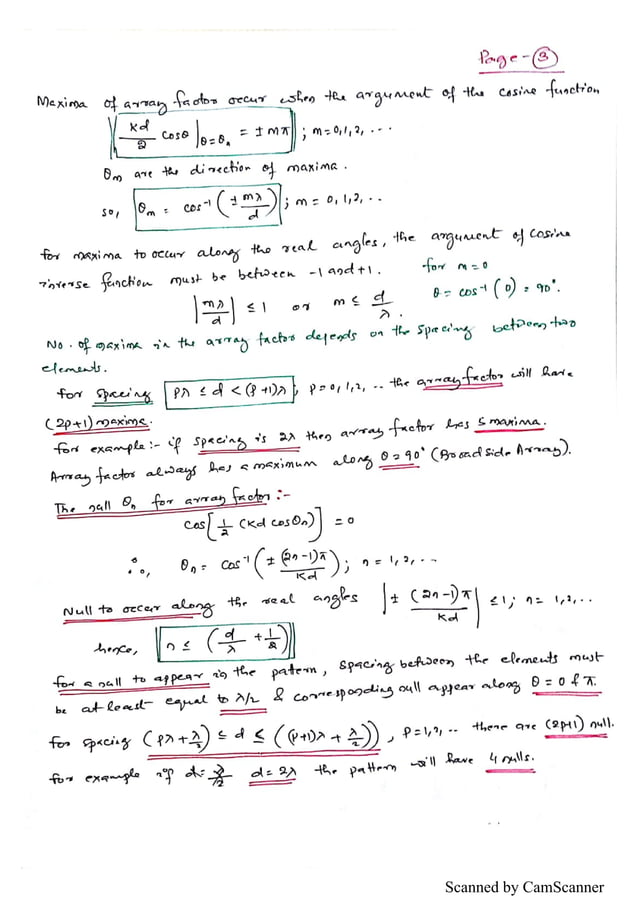 Page-③
Maxima of array factor occur when the argument of the cosine function
Kd/2 cosθ |θ=θn = ± mπ ; m=0,1,2, ...
θm are the direction of maxima.
so, θm = cos⁻¹ (± mλ/d) ; m = 0, 1, 2, ..
for maxima to occur along the real angles, the argument of cosine
inverse function must be between -1 and +1. for m=0
|mλ/d| ≤ 1 or m ≤ d/λ. θ = cos⁻¹(0) = 90°.
No. of maxima in the array factor depends on the spacing between two
elements.
for spacing Pλ ≤ d < (P+1)λ, P=0,1,2, .. the array factor will have
(2P+1) maxima.
for example:- if spacing is 2λ then array factor has 5 maxima.
Array factor always has a maximum along θ=90° (Broadside Array).
The null θn for array factor:-
cos[1/2 (Kd cosθn)] = 0
∴, θn = cos⁻¹ (± (2n-1)π/Kd) ; n = 1, 2, ..
Null to occur along the real angles |± (2n-1)π/Kd| ≤ 1; n= 1,2,..
hence, n ≤ (d/λ + 1/2)
for a null to appear in the patern, spacing between the elements must
be at least equal to λ/2 & corresponding null appear along θ = 0 & π.
for spacing (Pλ+λ/2) ≤ d ≤ ((P+1)λ + λ/2)), P=1,2, .. there are (2P+1) null.
for example if d= d=2λ the pattern will have 4 nulls.
Scanned by CamScanner